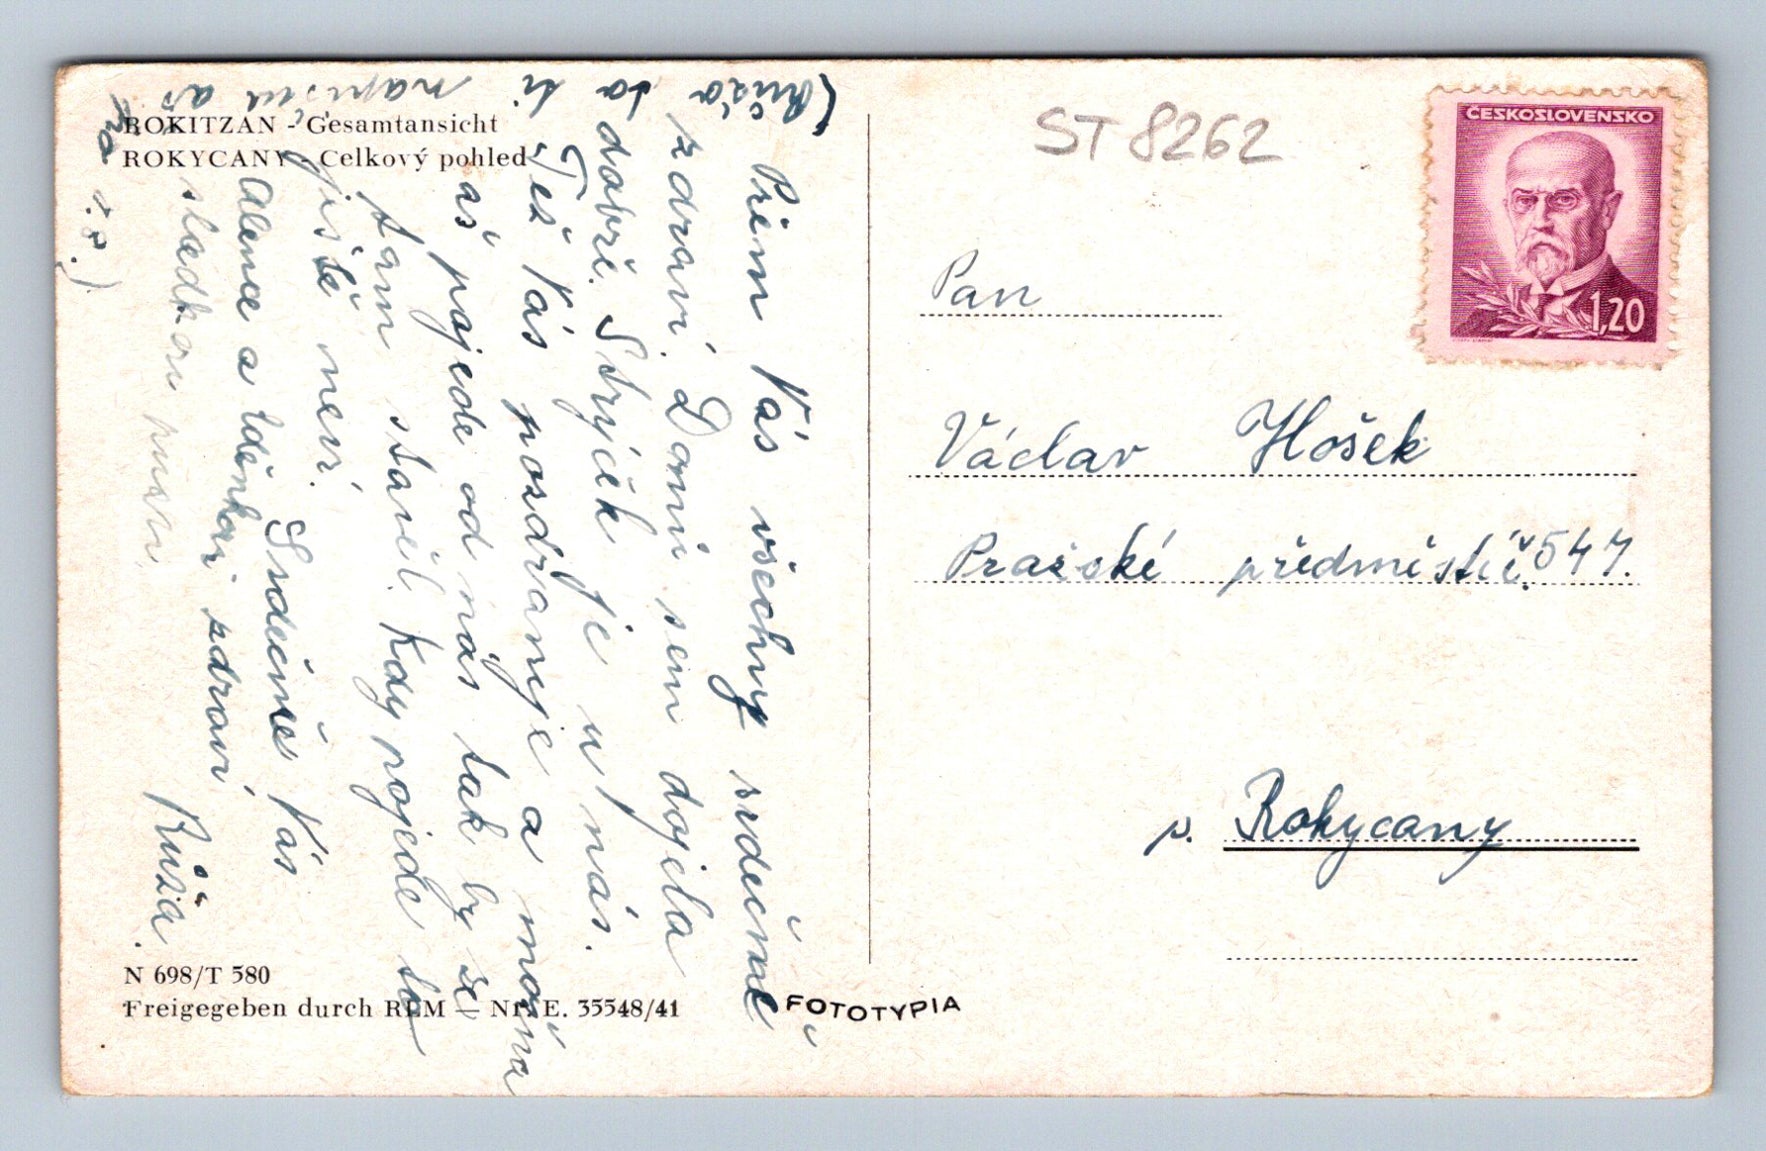 ROKITZAN - Gesamtansicht
ROKYCANY - Celkový pohled
Přeji Vás všechny srdečně
zdraví. Domů sem dojela
dobře. Strýček je u nás.
Též Vás pozdravuje a možná
až pojede od nás tak by se
tam stavěl. Kdy pojede to
jistě neví. Srdečně Vás
Alence a Zdeňkovi zdraví
Růža.
(Růža to ti napíšu až
N 698/T 580
Freigegeben durch RLM — Nr. E. 35548/41
FOTOTYPIA
ST 8262
ČESKOSLOVENSKO
1,20
Pan
Václav Hošek
Pražské předměstí č. 547.
p. Rokycany